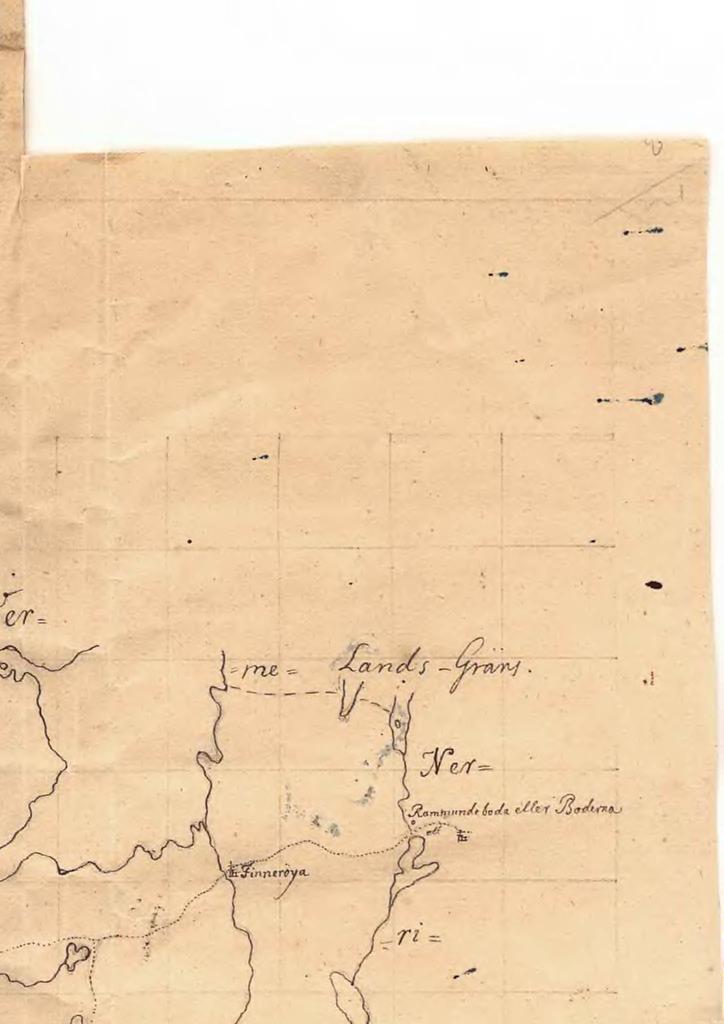 Ver=
=me= Lands-Gräns.
Ner=
Rammundeboda eller Boderna
Finneröya
=ri=